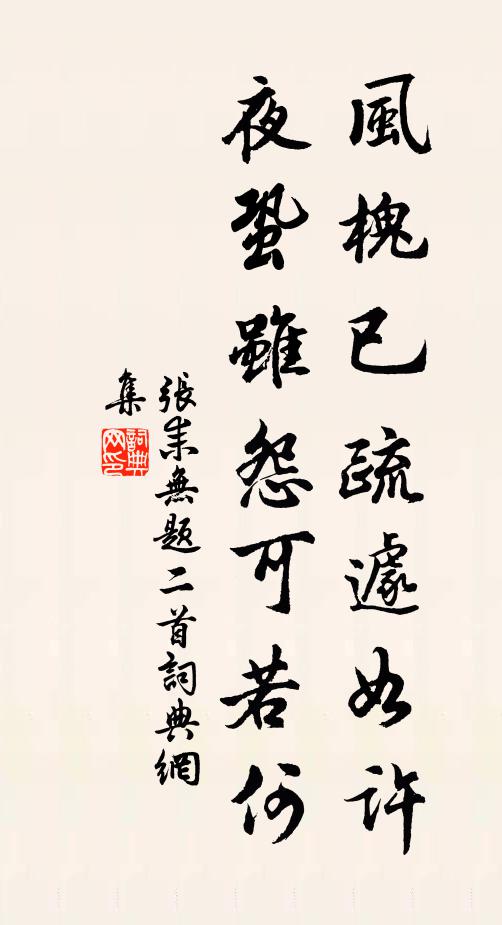 風槐已疏遽如許
夜蛩雖怨可若何
張耒無題二首詞典網
集
詞典
网印